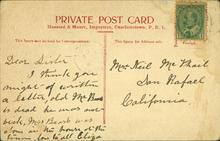 PRIVATE POST CARD
Haszard & Moore, Importers, Charlottetown, P. E. I.
This space may be used for Correspondence.
This space for address only.
Dear Sister
I think you
might of written
a letter, old Mr
is dead he was not
sick, Mrs
alone in the house at the
Eliza
Mrs Neil McPhail
San Rafael
California